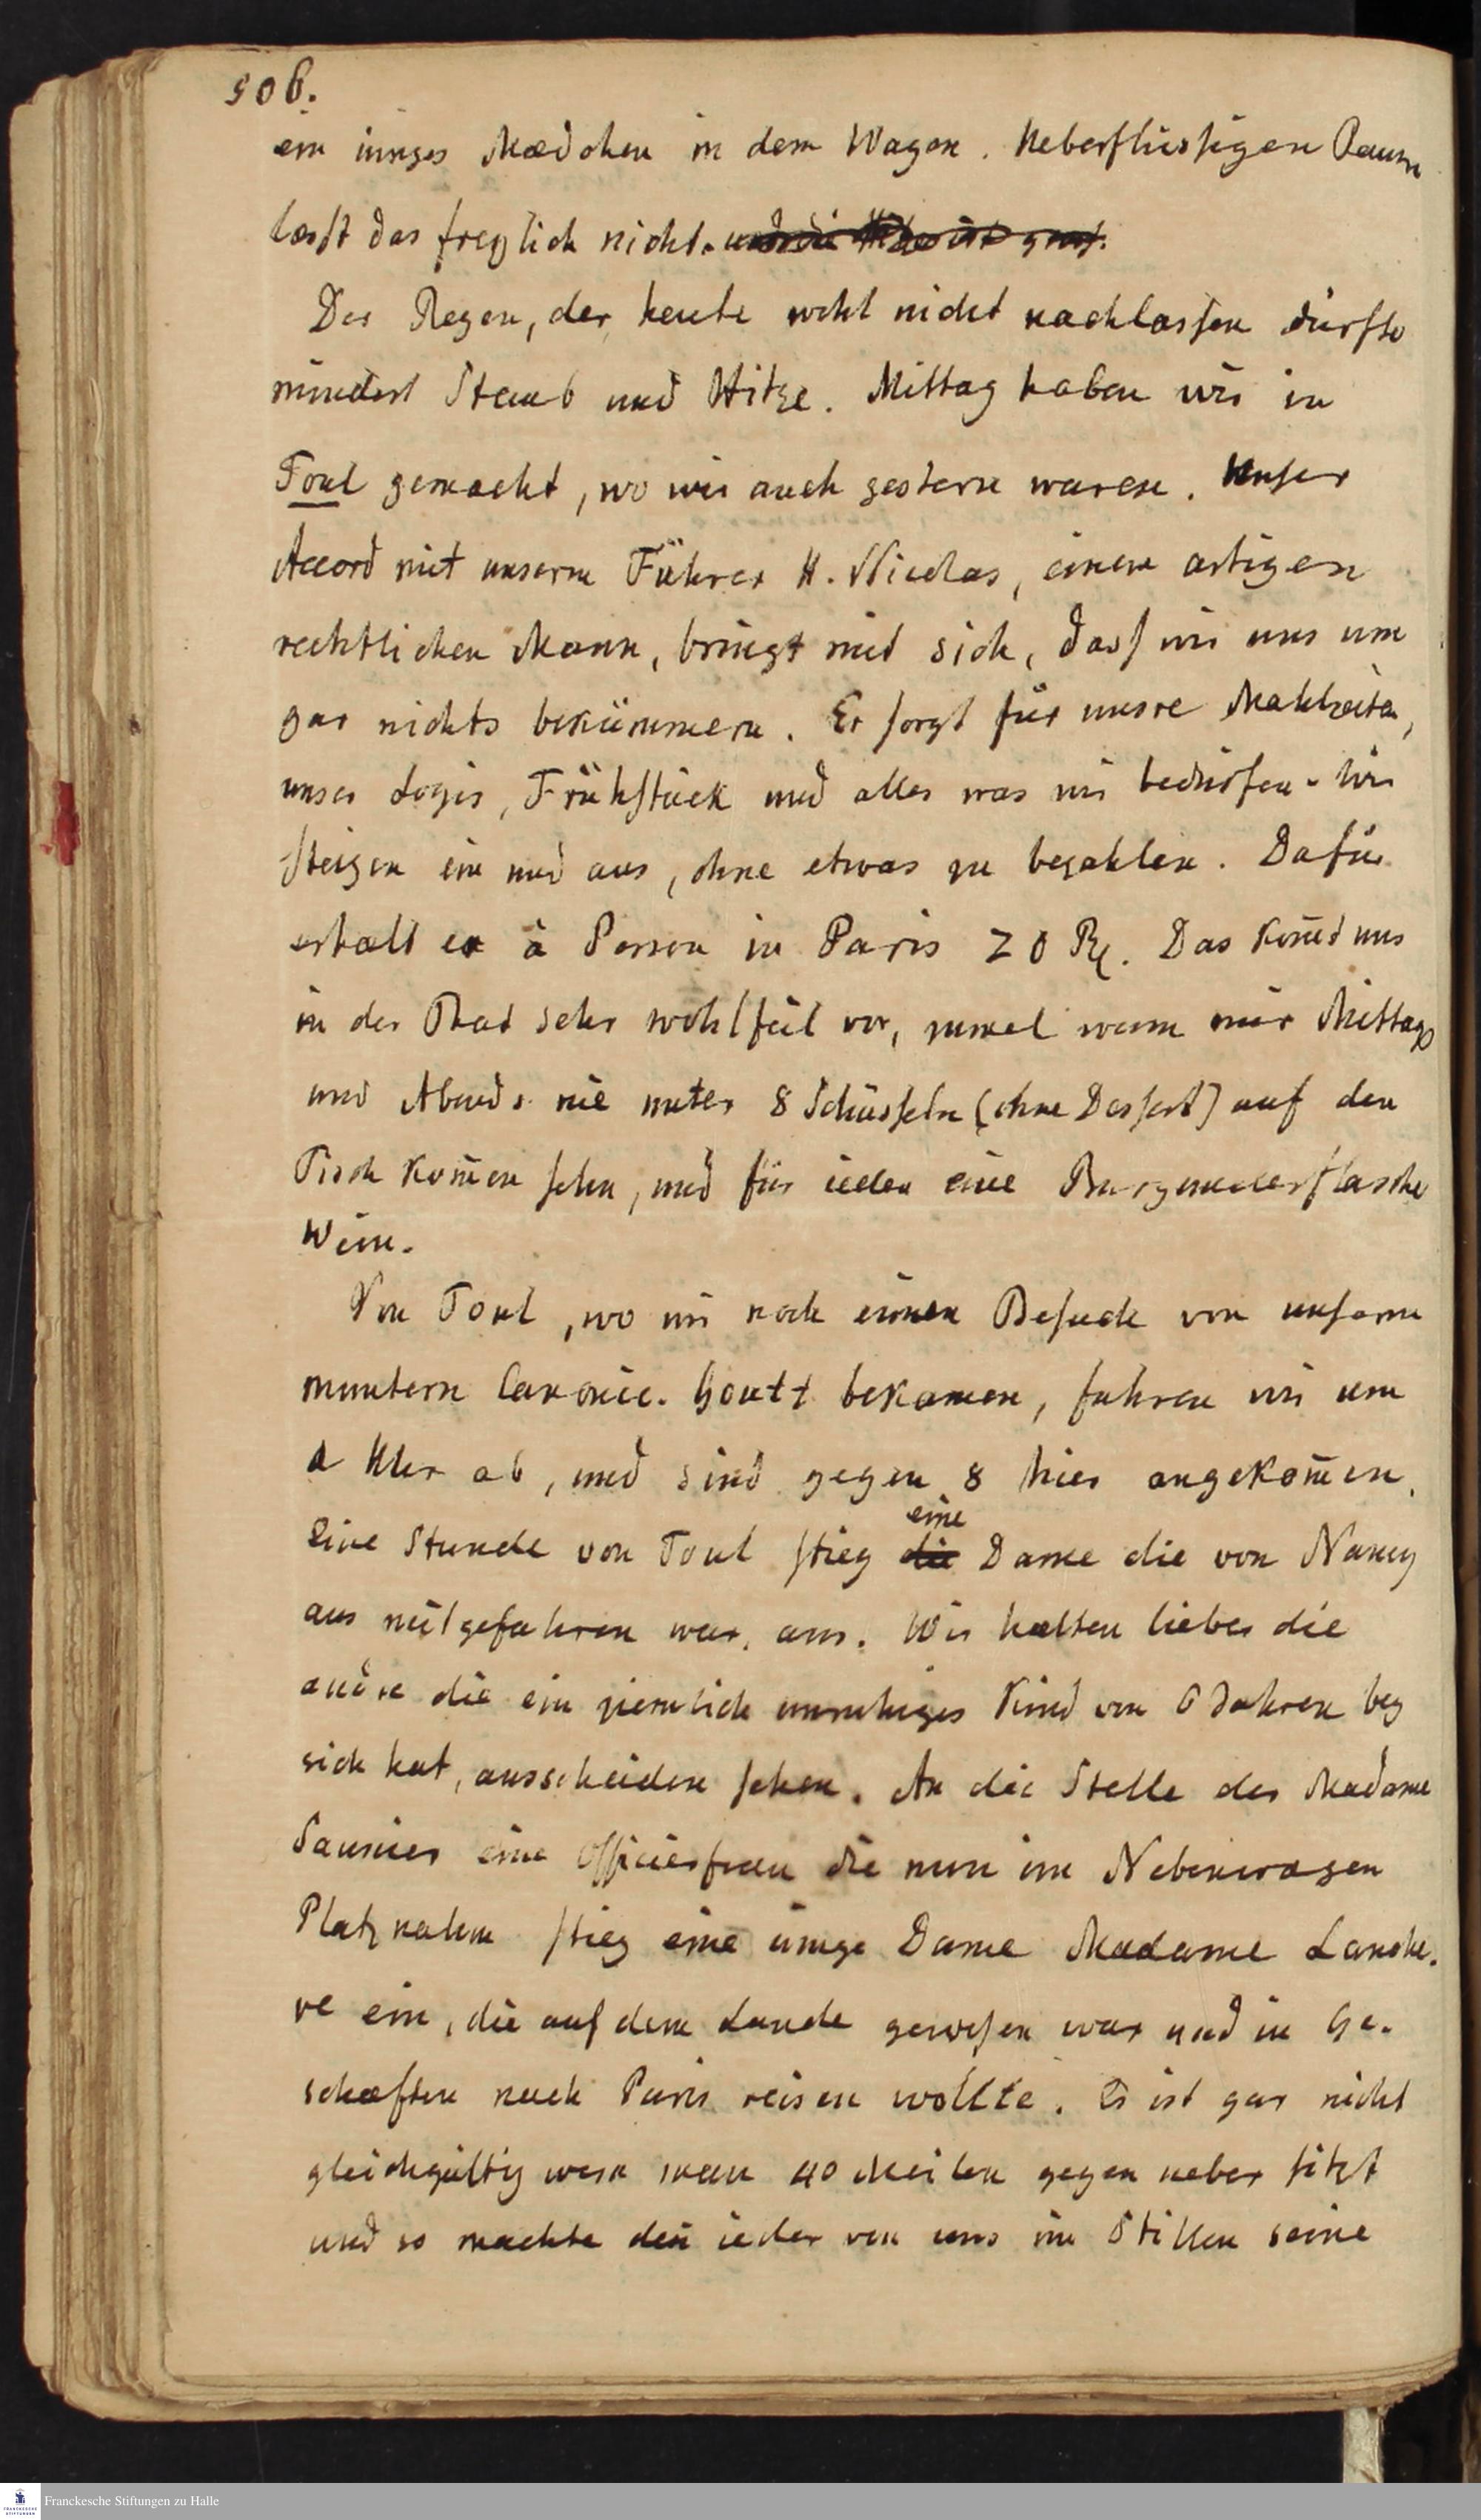 506.
ein iunges Mædchen in dem Wagen. Ueberflüssigen Raum
læsst das freylich nicht.
Der Regen, der heute wohl nicht nachlassen dürfte
mindert Staub und Hitze. Mittag haben wir in
Toul gemacht, wo wir auch gestern waren. Unser
Accord mit unserm Führer H. Nicolas, einem artigen
rechtlichen Mann, bringt mit sich, dass wir uns um
gar nichts bekümmern. Er sorgt für unsre Mahlzeiten,
unser Logis, Frühstück und alles was wir bedürfen. Wir
steigen ein und aus, ohne etwas zu bezahlen. Dafür
erhælt er à Person in Paris 20 Rtl. Das kom̄t uns
in der That sehr wohlfeil vor, zumal wenn wir Mittags
und Abends nie unter 8 Schüsseln (ohne Dessert) auf den
Tisch kom̄en sehn, und für ieden eine Burgunderflasche
Wein.
Von Toul, wo wir noch einen Besuch von unserm
muntern Canonic. Goutt bekamen, fuhren wir um
2 Uhr ab, und sind gegen 8 hier angekom̄en.
eine
Eine Stunde von Toul stieg die Dame die von Nancy
aus mitgefahren war, aus. Wir hætten lieber die
andre die ein ziemlich unruhiges Kind von 6 Jahren bey
sich hat, ausscheiden sehen. An die Stelle der Madame
Saunier eine Officiersfrau die nun im Nebenwagen
Platz nahm stieg eine iunge Dame Madame Lanche-
re ein, die auf dem Lande gewesen war und in Ge-
schæften nach Paris reisen wollte. Es ist gar nicht
gleichgültig wem man 40 Meilen gegen ueber sitzt
und so machte den̄ ieder von uns im Stillen seine
Franckesche Stiftungen zu Halle